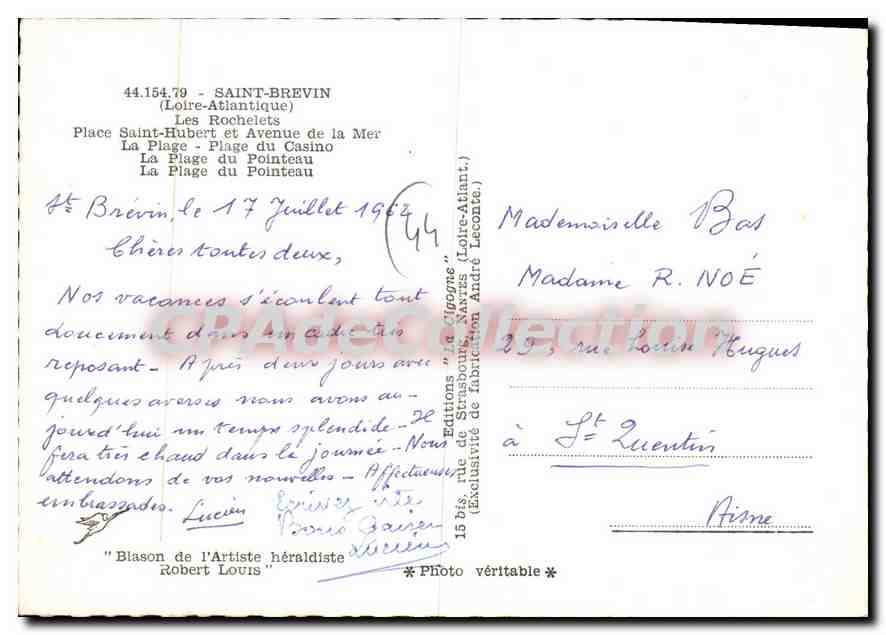 44.154.79 - SAINT-BREVIN
(Loire-Atlantique)
Les Rochelets
Place Saint-Hubert et Avenue de la Mer
La Plage - Plage du Casino
La Plage du Pointeau
La Plage du Pointeau
St Brévin, le 17 Juillet 1962
(44
Chères toutes deux,
Nos vacances s'écoulent tout
doucement dans un cadre très
reposant - Après deux jours avec
quelques averses nous avons au-
jourd'hui un temps splendide - Il
fera très chaud dans la journée - Nous
attendons de vos nouvelles - Affectueuses
embrassades.
Lucien
Ecrivez vite
Bons Baisers
Lucien
"Blason de l'Artiste héraldiste
Robert LOUIS"
Editions "La Cigogne"
15 bis, rue de Strasbourg, NANTES (Loire-Atlant.)
(Exclusivité de fabrication André Leconte.)
* Photo véritable *
Mademoiselle Bas
Madame R. NOÉ
29, rue Louise Hugues
à St Quentin
Aisne
CPAdeCollection.com